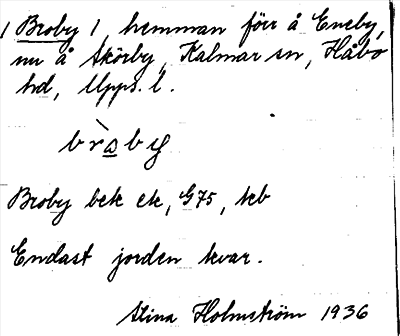 1 Broby 1 hemman förr å Eneby,
nu å Skörby, Kalmar sn, Håbo
hd, Upps. l.
br̀a̲by
Broby bek ek, G75, kb
Endast jorden kvar.
Stina Holmström 1936